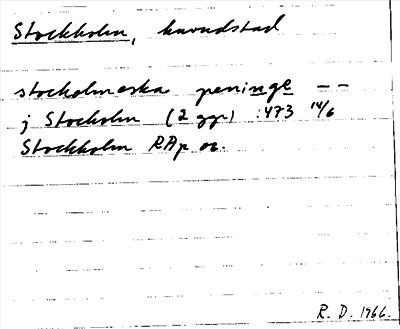 Stockholm, huvudstad
stocholmeska peninge – –
j Stocholm (2 ggr) 1473 14/6
Stockholm RAp or.
R. D. 1966.